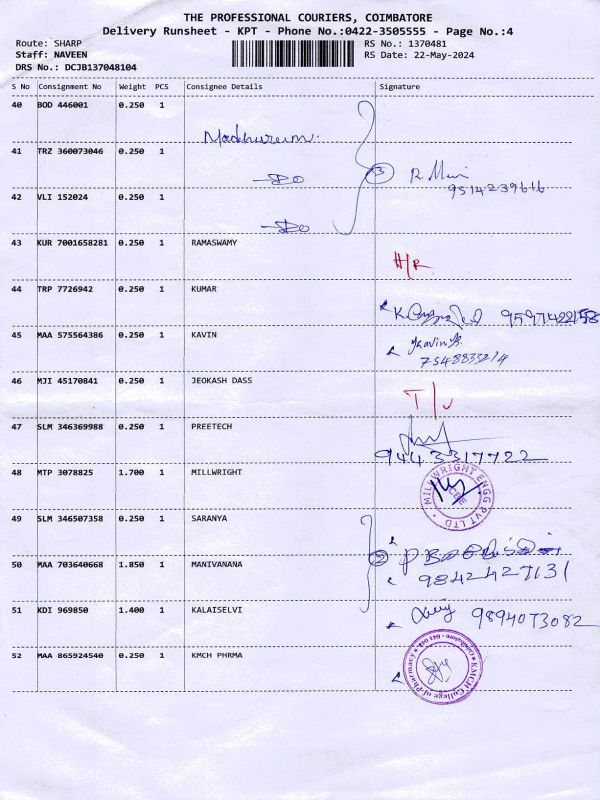 THE PROFESSIONAL COURIERS, COIMBATORE
Delivery Runsheet - KPT - Phone No.:0422-3505555 - Page No.:4
Route: SHARP
Staff: NAVEEN
DRS No.: DCJB137048104
RS No.: 1370481
RS Date: 22-May-2024
S No Consignment No Weight PCS Consignee Details Signature
40 BOD 446001 0.250 1
Madhurum.
41 TRZ 360073046 0.250 1
Do
3
9514239616
42 VLI 152024 0.250 1
Do
43 KUR 7001658281 0.250 1 RAMASWAMY
H/R
44 TRP 7726942 0.250 1 KUMAR
45 MAA 575564386 0.250 1 KAVIN
Kavin
46 MJI 45170841 0.250 1 JEOKASH DASS
47 SLM 346369988 0.250 1 PREETECH
9443317722
48 MTP 3078825 1.700 1 MILLWRIGHT
MILLWRIGHT ENGG PVT LTD
CBE
49 SLM 346507358 0.250 1 SARANYA
50 MAA 703640668 1.850 1 MANIVANANA
2
9842427131
51 KDI 969850 1.400 1 KALAISELVI
9894073082
52 MAA 865924540 0.250 1 KMCH PHRMA
KMCH College of Pharmacy
Coimbatore - 641 048